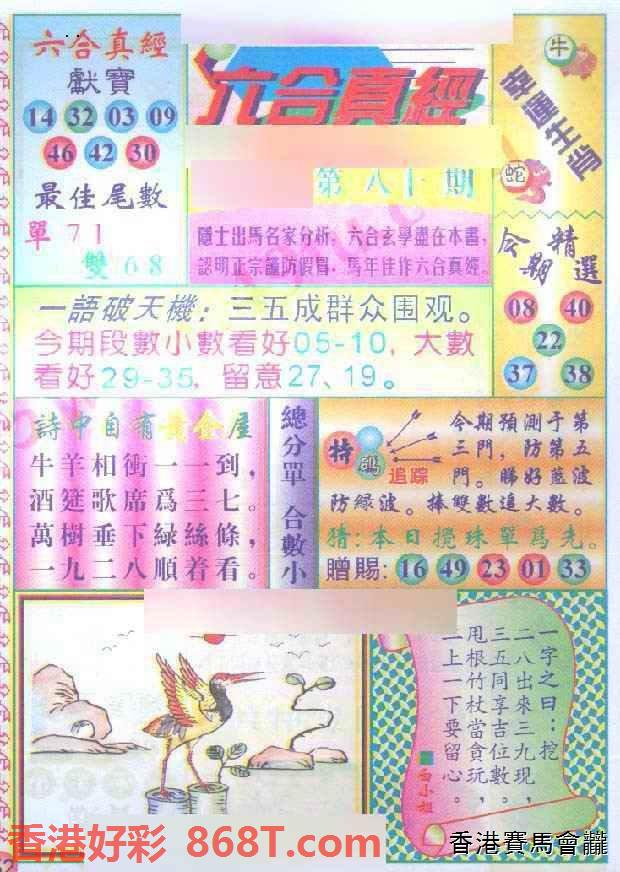 六合真經
獻寶
14 32 03 09
46 42 30
最佳尾數
單 7 1
雙 6 8
六合真經
第八十期
隱士出馬名家分析，六合玄學盡在本書，
認明正宗謹防假冒，馬年佳作六合真經。
牛
幸運生肖
蛇
一語破天機：三五成群众围观。
今期段數小數看好05-10，大數
看好29-35，留意27、19。
今期精選
08 40
22
37 38
詩中自有黃金屋
牛羊相衝一一到，
酒筵歌席爲三七。
萬樹垂下緑絲條，
一九二八順着看。
總分單 合數小
特碼
追踪
今期預測于第
三門，防第五
門。睇好藍波
防緑波。捧雙數追大數。
猜:本日攪珠單爲先。
贈賜: 16 49 23 01 33
一字之曰：挖
二八出來三九現，
三五同享吉位數，
甩根竹杖當貪玩，
二上一下要留心。
白小姐
香港好彩 868T.com
香港賽馬會